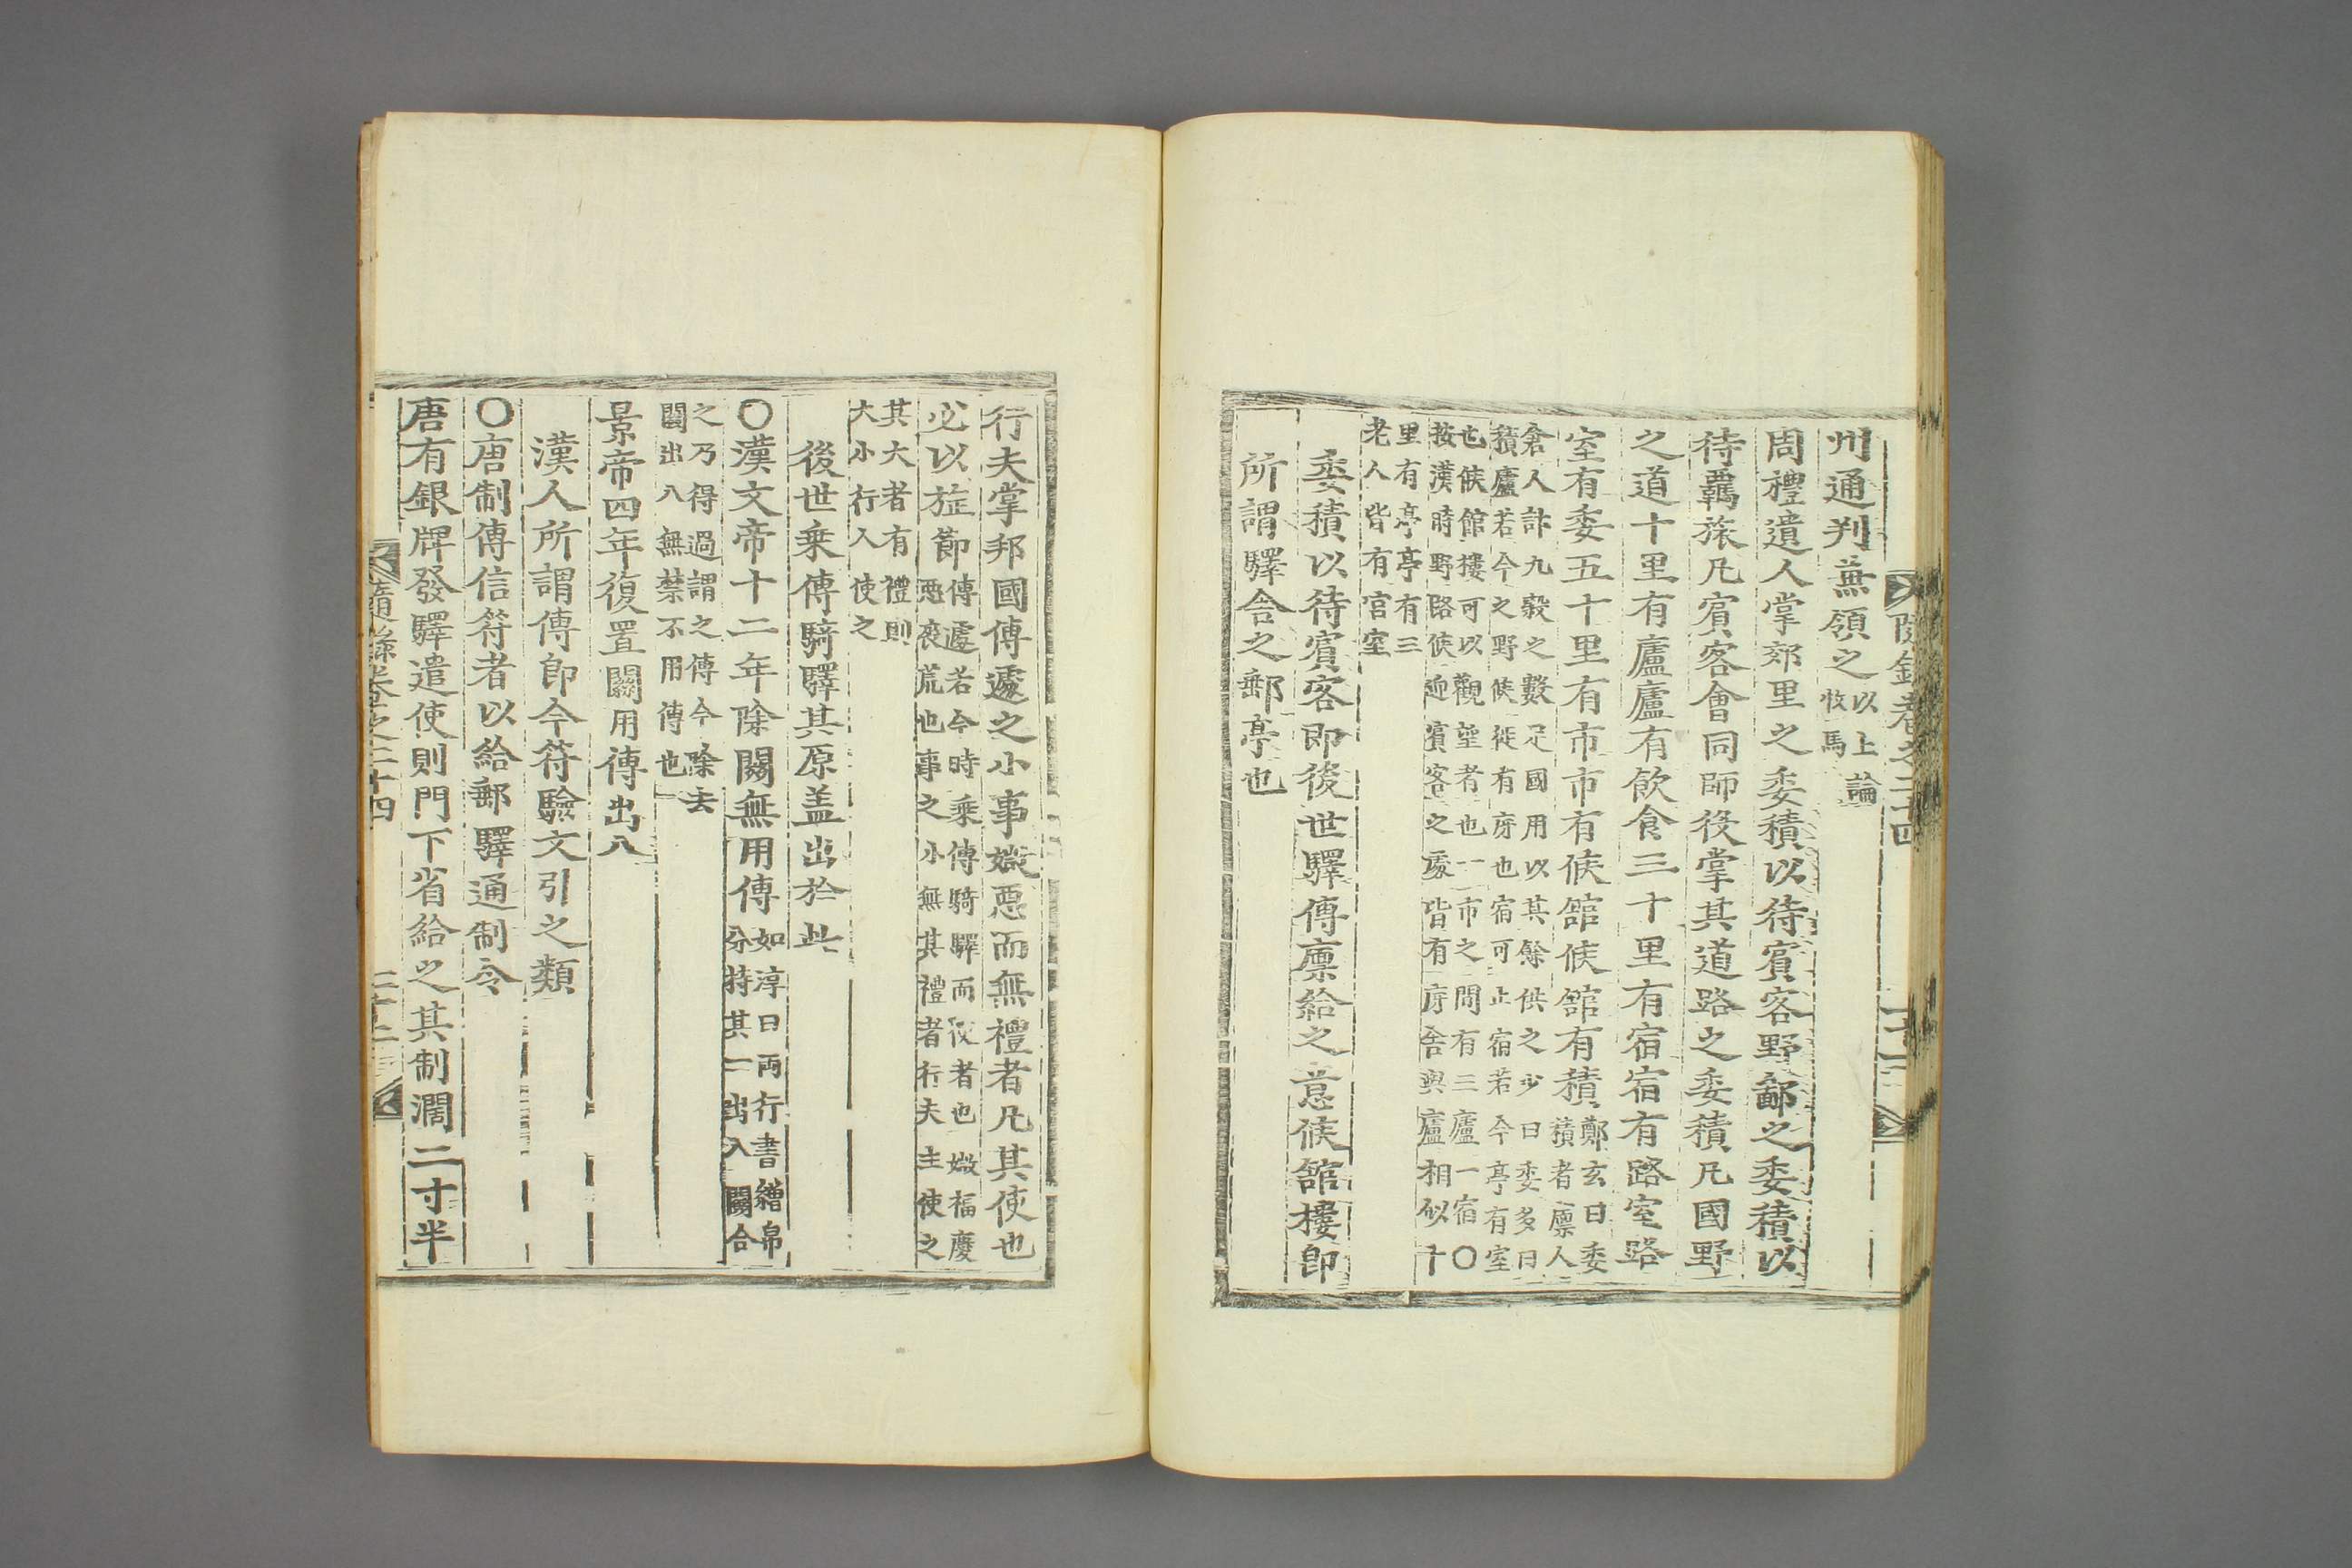 隨錄卷之二十四
州通判兼領之以上論
牧馬
周禮遺人掌郊里之委積以待賓客野鄙之委積以
待羈旅凡賓客會同師役掌其道路之委積凡國野
之道十里有廬廬有飮食三十里有宿宿有路室路
室有委五十里有市市有候舘候舘有積鄭玄曰委
積者廩人
倉人計九穀之數足國用以其餘供之少曰委多曰
積廬若今之野候徙有房也宿可止宿若今亭有室
也候館樓可以觀望者也一市之間有三廬一宿〇
按漢時野路候迎賓客之處皆有房舍與廬相似十
里有亭亭有三
老人皆有宮室
委積以待賓客卽後世驛傳廩給之意候舘樓卽
所謂驛舍之郵亭也
行夫掌邦國傳遽之小事媺惡而無禮者凡其使也
必以㫌節傳遽若今時乘傳騎驛而使者也媺福慶
惡喪荒也事之小無其禮者行夫主使之
其大者有禮則
大小行人使之
後世乗傳騎驛其原盖出於此
〇漢文帝十二年除關無用傳如淳曰兩行書繒帛
分持其一出入關合
之乃得過謂之傳今除去
關出入無禁不用傳也
景帝四年復置關用傳出入
漢人所謂傳卽今符驗文引之類
〇唐制傳信符者以給郵驛通制令
唐有銀牌發驛遣使則門下省給之其制濶二寸半
隨錄卷之二十四
二十二